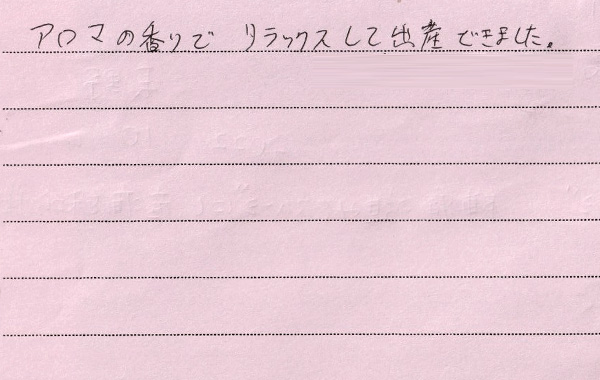 アロマの香りで リラックスして出産できました。